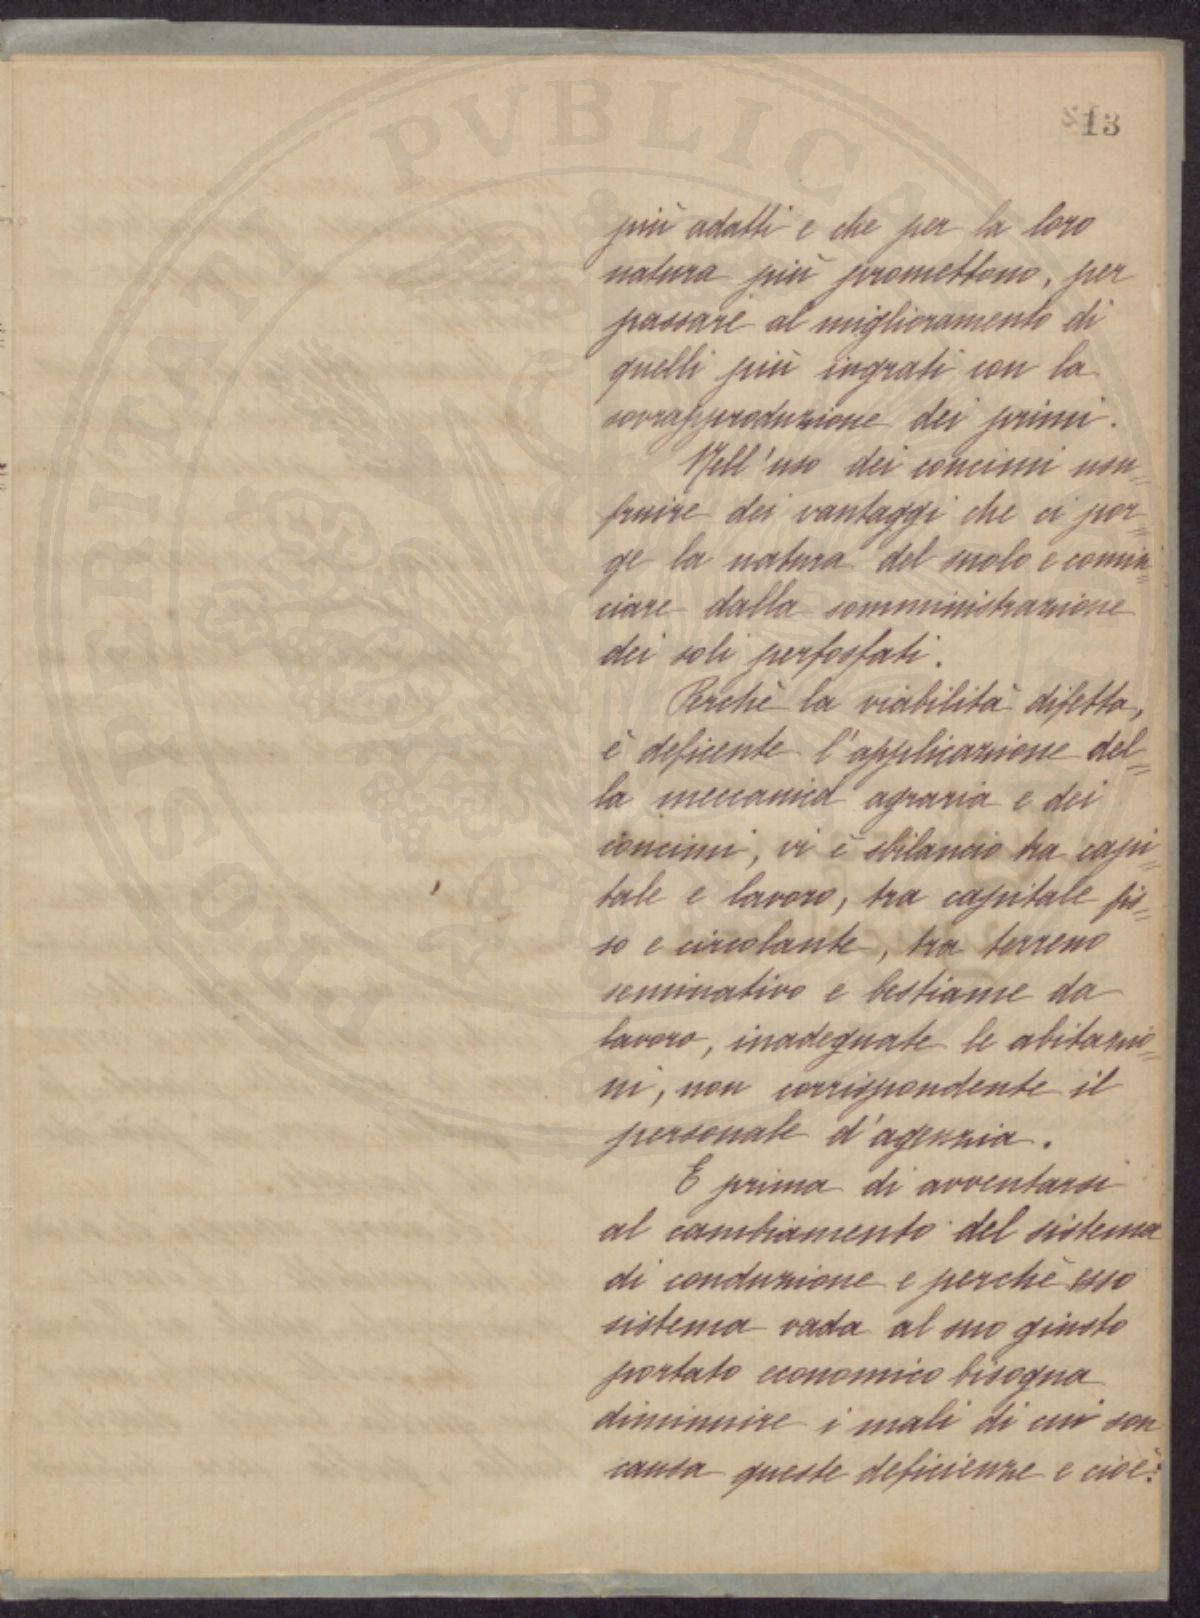 13
più adatti e che per la loro
natura più promettono, per
passare al miglioramento di
quelli più ingrati con la
sovrapproduzione dei primi.
Nell'uso dei concimi usu=
fruire dei vantaggi che ci por=
ge la natura del suolo e comin=
ciare dalla somministrazione
dei soli perfosfati.
Perchè la viabilità difetta,
è deficente l'applicazione del=
la meccanica agraria e dei
concimi, vi è sbilancio tra capi=
tale e lavoro, tra capitale fis=
so e circolante, tra terreno
seminativo e bestiame da
lavoro, inadeguate le abitazio=
ni, non corrispondente il
personale d'agenzia.
E prima di avventarsi
al cambiamento del sistema
di conduzione e perchè esso
sistema vada al suo giusto
portato economico bisogna
diminuire i mali di cui son
causa queste deficienze e cioè:
PROSPERITATI PVBLICAE